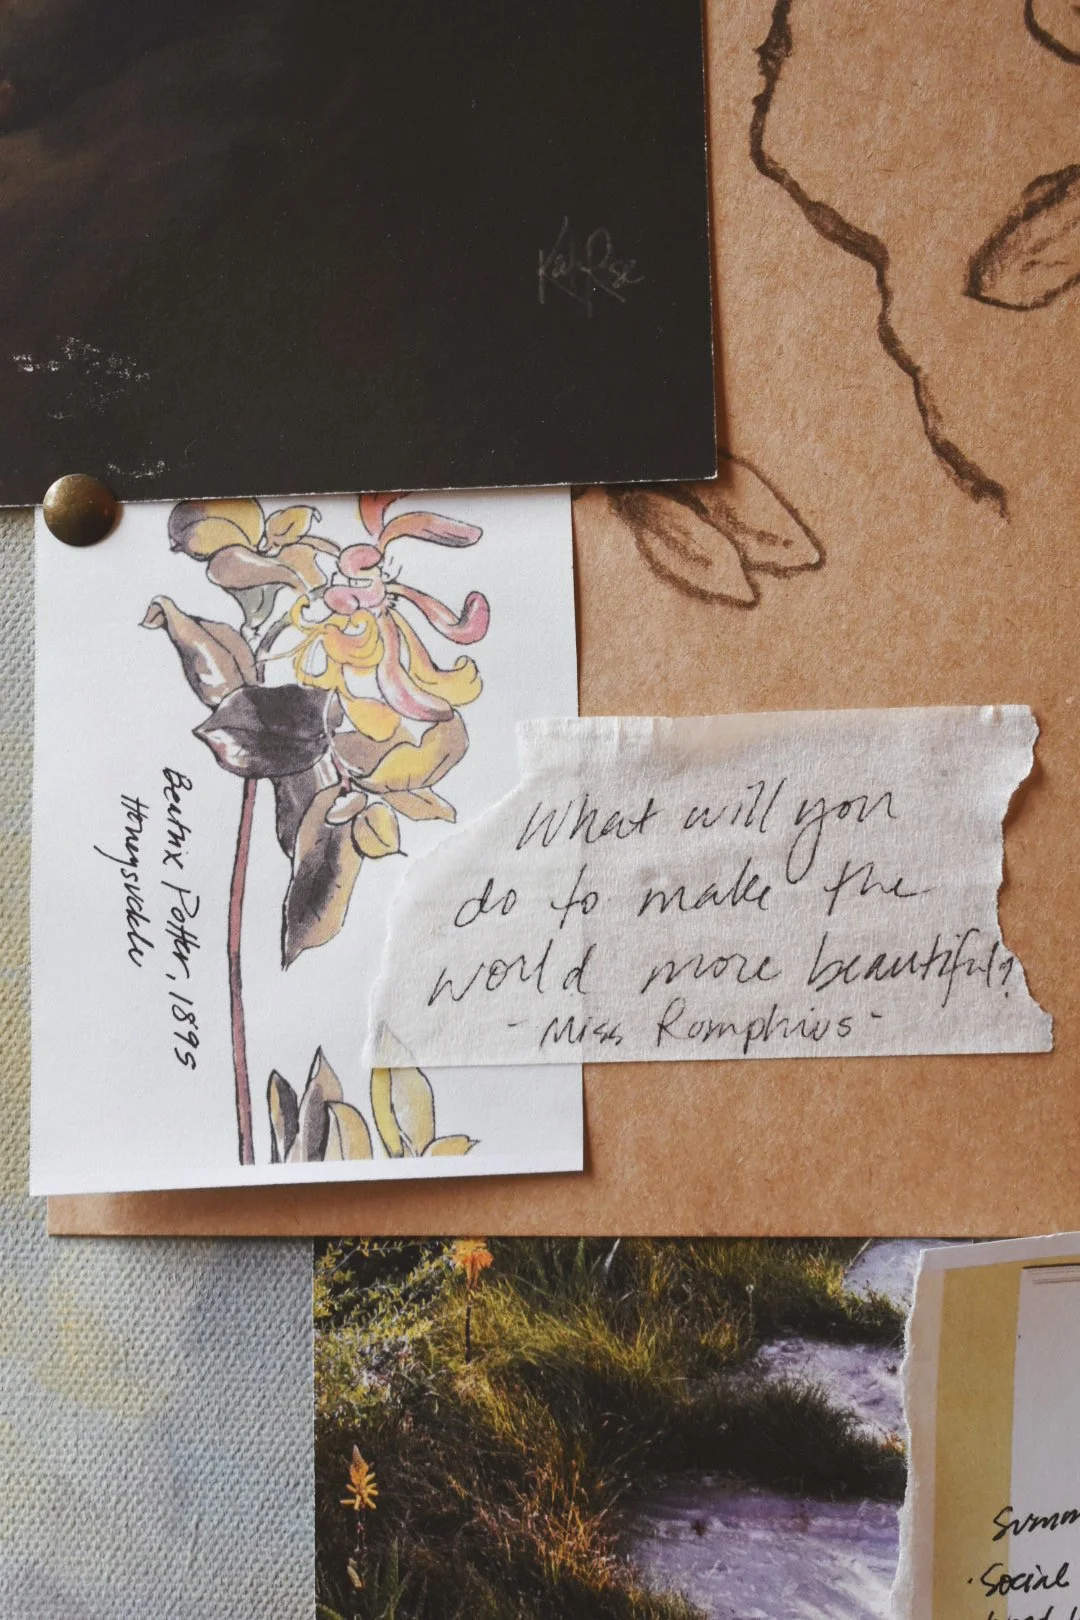 Kat Rose
Beatrix Potter, 1895
Honeysuckle
What will you
do to make the
world more beautiful?
- Miss Rumphius -
Social